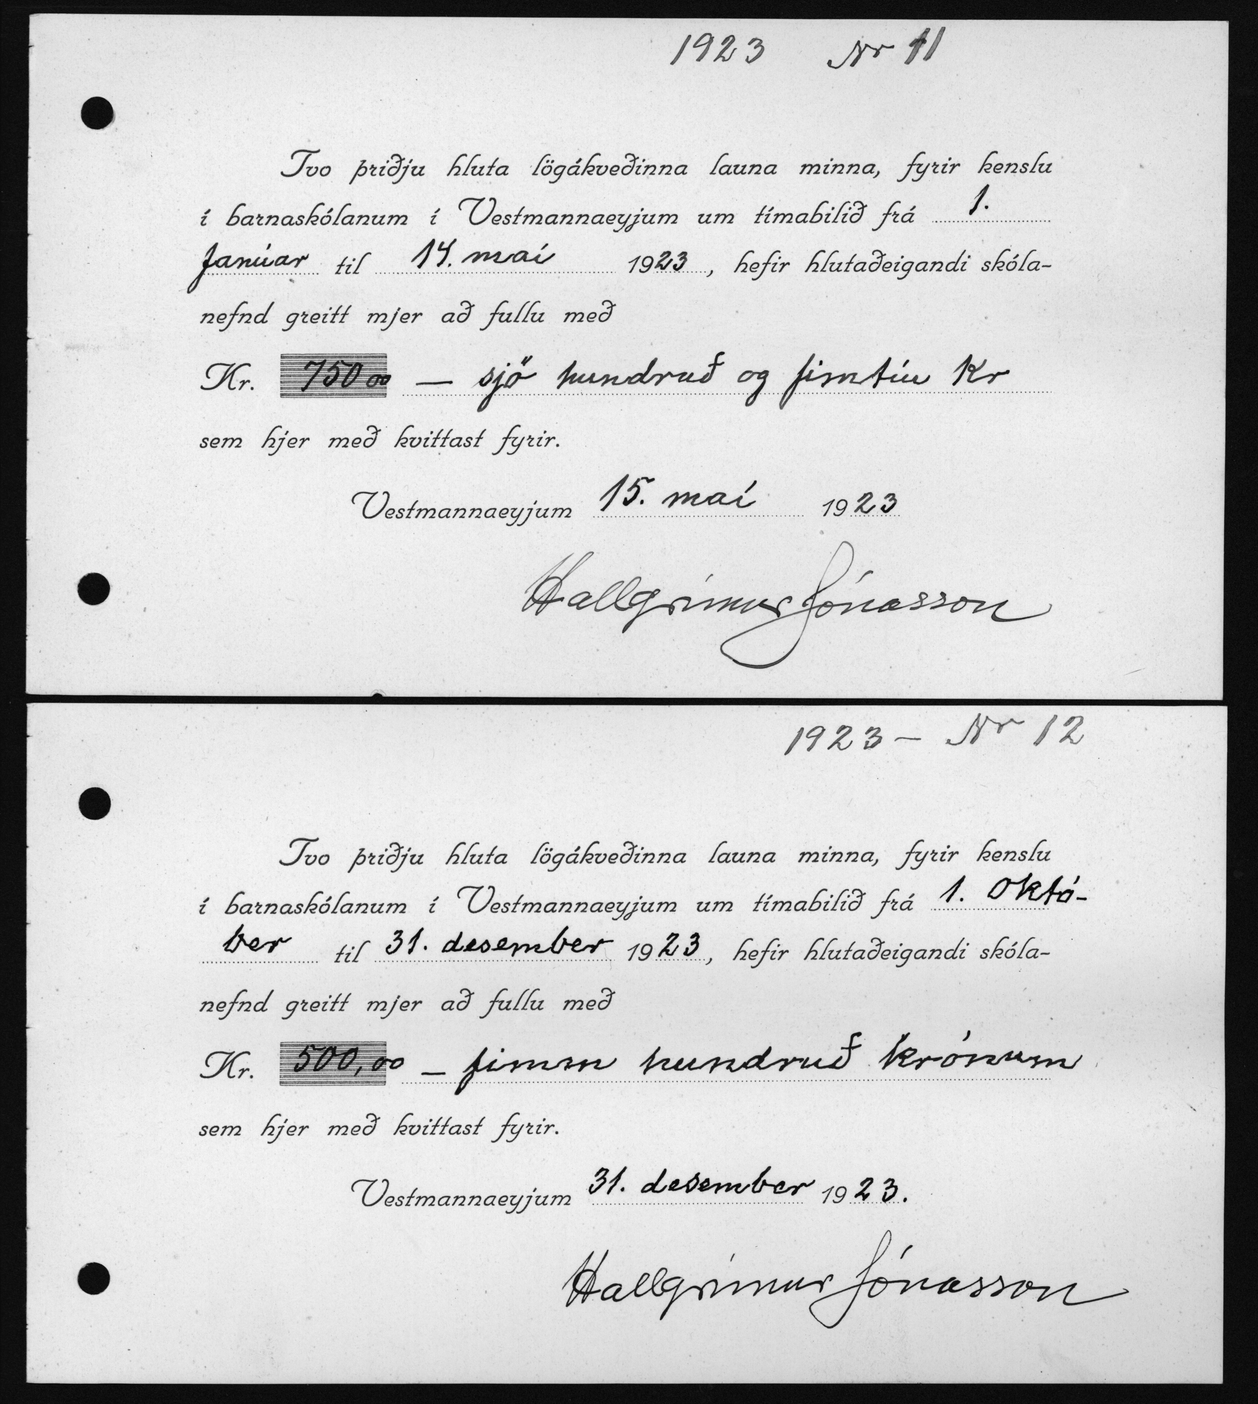 1923 Nr 11
Tvo þriðju hluta lögákveðinna launa minna, fyrir kenslu
í barnaskólanum í Vestmannaeyjum um tímabilið frá 1.
Janúar til 14. maí 1923, hefir hlutaðeigandi skóla-
nefnd greitt mjer að fullu með
Kr. 750 00 — sjö hundruð og fimtíu Kr
sem hjer með kvittast fyrir.
Vestmannaeyjum 15. maí 1923
Hallgrímur Jónasson
1923 — Nr 12
Tvo þriðju hluta lögákveðinna launa minna, fyrir kenslu
í barnaskólanum í Vestmannaeyjum um tímabilið frá 1. Októ-
ber til 31. desember 1923, hefir hlutaðeigandi skóla-
nefnd greitt mjer að fullu með
Kr. 500,00 — fimm hundruð krónum
sem hjer með kvittast fyrir.
Vestmannaeyjum 31. desember 1923.
Hallgrímur Jónasson